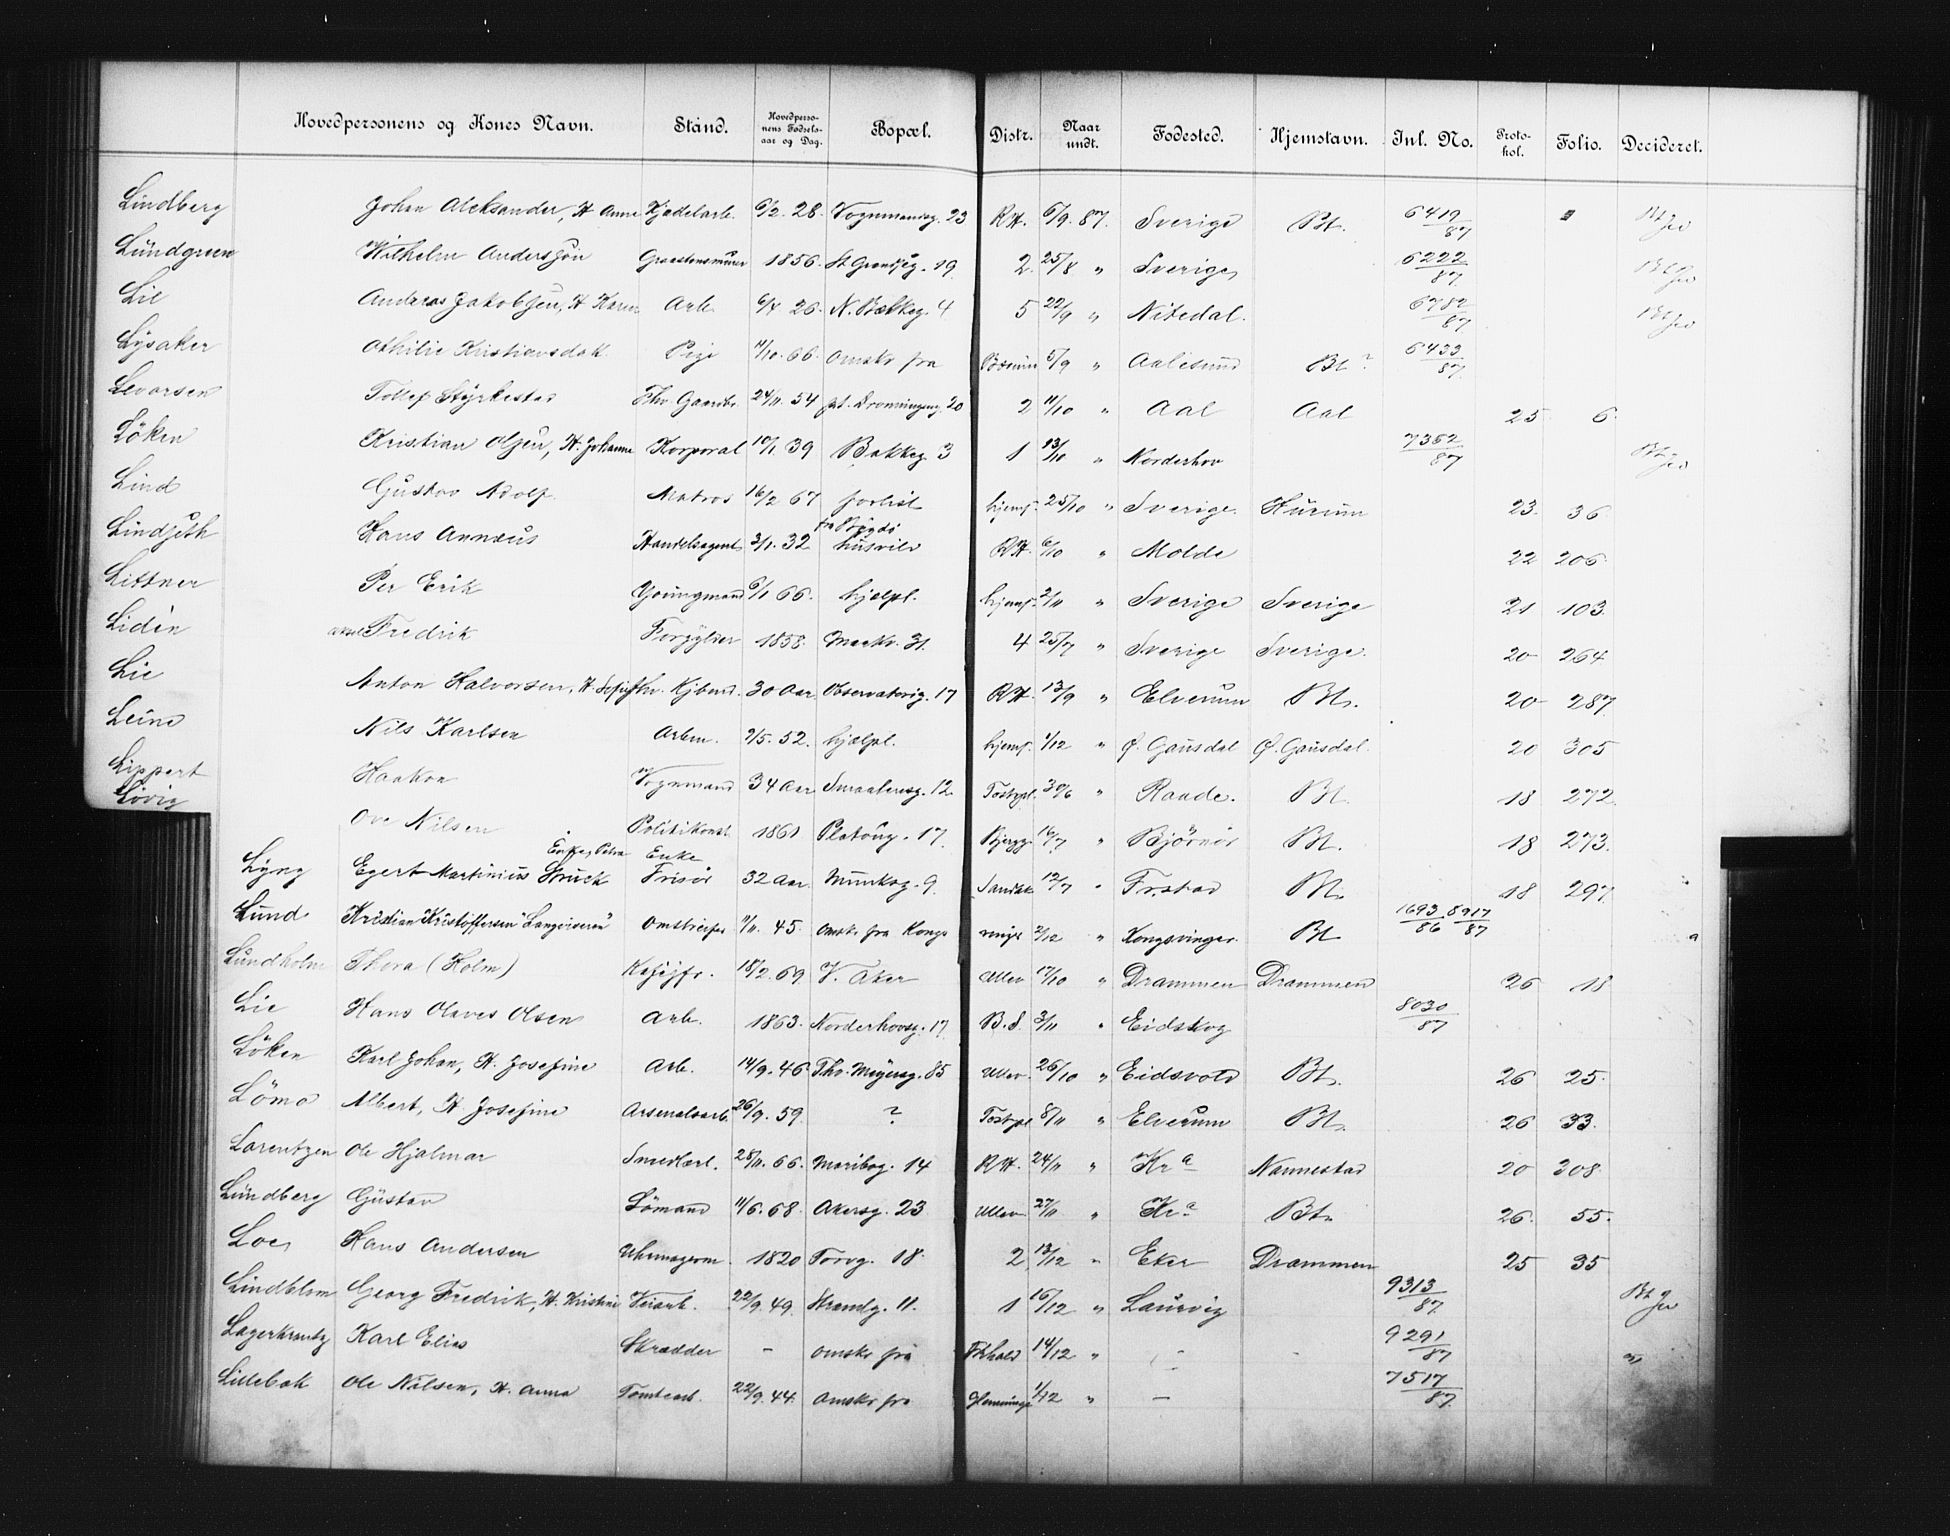 Hovedpersonens og Kones Navn. Stand. Hovedperso-nens Fødsels-aar og Dag. Bopæl. Distr. Naar undt. Fødested. Hjemstavn. Inl. No. Proto-kol. Folio. Decideret.
Lindberg Johan Aleksander, H. Anne Kjedelarb. 6/2. 28. Vognmandsg. 23 RH. 6/9. 87. Sverige Bt. 6419/87
Lundgreen Wilhelm Andersson 1856. St Grændseg. 19 2. 25/8 " Sverige 6222/87
Lie Andreas Jakobsen, H. Karen Arb. 26. N. Bækkeg. 4 5 22/9 " Nitedal. 6782/87
Lysaker Othilie Kristiansdak Pige 11/10. 66. Omskr fra Bærum 5/9 " Aalesund Bt? 6433/87
Levorsen Tollef Styrkesen Fhv. Gaardbr. 24/11. 54 pt. Dronningeng. 20 2 11/10 " Aal Aal 25 6.
Löken Kristian Olsen, H. Johanne Korporal 10/1 39 Bakkeg. 3 1 13/10 " Norderhov 7362/87
Lind Gustav Adolf. Matros 16/2 67 forlist hjemf. 25/10 " Sverige. Hurum 23. 36
Lindseth Hans Annæus Handelsagent 3/1. 32 fra Bygdö husvild RH. 6/10 " Molde 22 206.
Littner Per Erik Youngmand 6/1 66. hjælpl. hjemf. 2/11 " Sverige Sverige 21 103.
Lidén Aksel Fredrik Forgylder 1858. Markv. 31. 4 25/7 " Sverige Sverige. 20 264
Lie Anton Halvorsen, H. Sofie fhv. Kjbmd. 30 Aar Observatorig. 17 RH. 13/9 " Elverum Bt. 20 287.
Leine Nils Karlsen Arbm. 9/5. 52. hjælpl. hjemf. 1/12 " Ø. Gausdal Ø. Gausdal. 20 305
Lippert Haakon Vognmand 34 Aar Smaalensg. 12 Tostrpl. 30/6 " Raade. Bt. 18 272
Lövig Ove Nilsen Politikonst. 1861 Platoug. 17. 16/7 " Björnör Bt. 18 273.
Lyng Egert Martinius Struck Enke, Petra Enke Frisör 32 Aar Munkeg. 9. Sandsk 12/7 " Frstad Bt. 18 297.
Lund Kristian Kristoffersen "Langeiseren" Omstreifer 11/11. 45. Omskr fra Kongs vinger 2/12 " Kongsvinger. Bt 1693/86 8917/87
Lundholm Thora (Holm) 18/2. 69. V. Aker Ullev 17/10 " Drammen Drammen 26 18
Lie Hans Olaves Olsen Arb. 1863. Norderhovsg. 17. B.S. 3/11 " Eidskog 8030/87
Löken Karl Johan, H. Josefine Arb. 14/9. 46 Thv. Meyersg. 85 Ullev. 26/10 " Eidsvold Bt. 26 25.
Lömo Albert, H. Josefine Arsenalsarb. 26/9. 59. ? Tostrpl 8/11 " Elverum Bt. 26 33.
Lorentzen Ole Hjalmar Smedlærl. 28/11. 66. Maribog. 14 RH. 24/11 " Kra Nannestad 20 308.
Lundberg Gustav Sömand 11/6. 68. Akersg. 23 Ullev 27/11 " Kra Bt. 26. 55.
Loe Hans Andersen Uhrmagerm. 1820 Torvg. 18. 2 13/12 " Eker Drammen 25 35
Lindblom Georg Fredrik, H. Kristine Veiarb. 22/9. 49. Strandg. 11. 1 16/12 " Laurvig 9313/87
Lagerkrantz Karl Elias Skrædder - omskr fra Frhald 14/12 " 9291/87
Lillebæk Ole Nilsen, H. Anna Tömtearb. 22/9. 44. Omskr fra 1/12 " - 7517/87